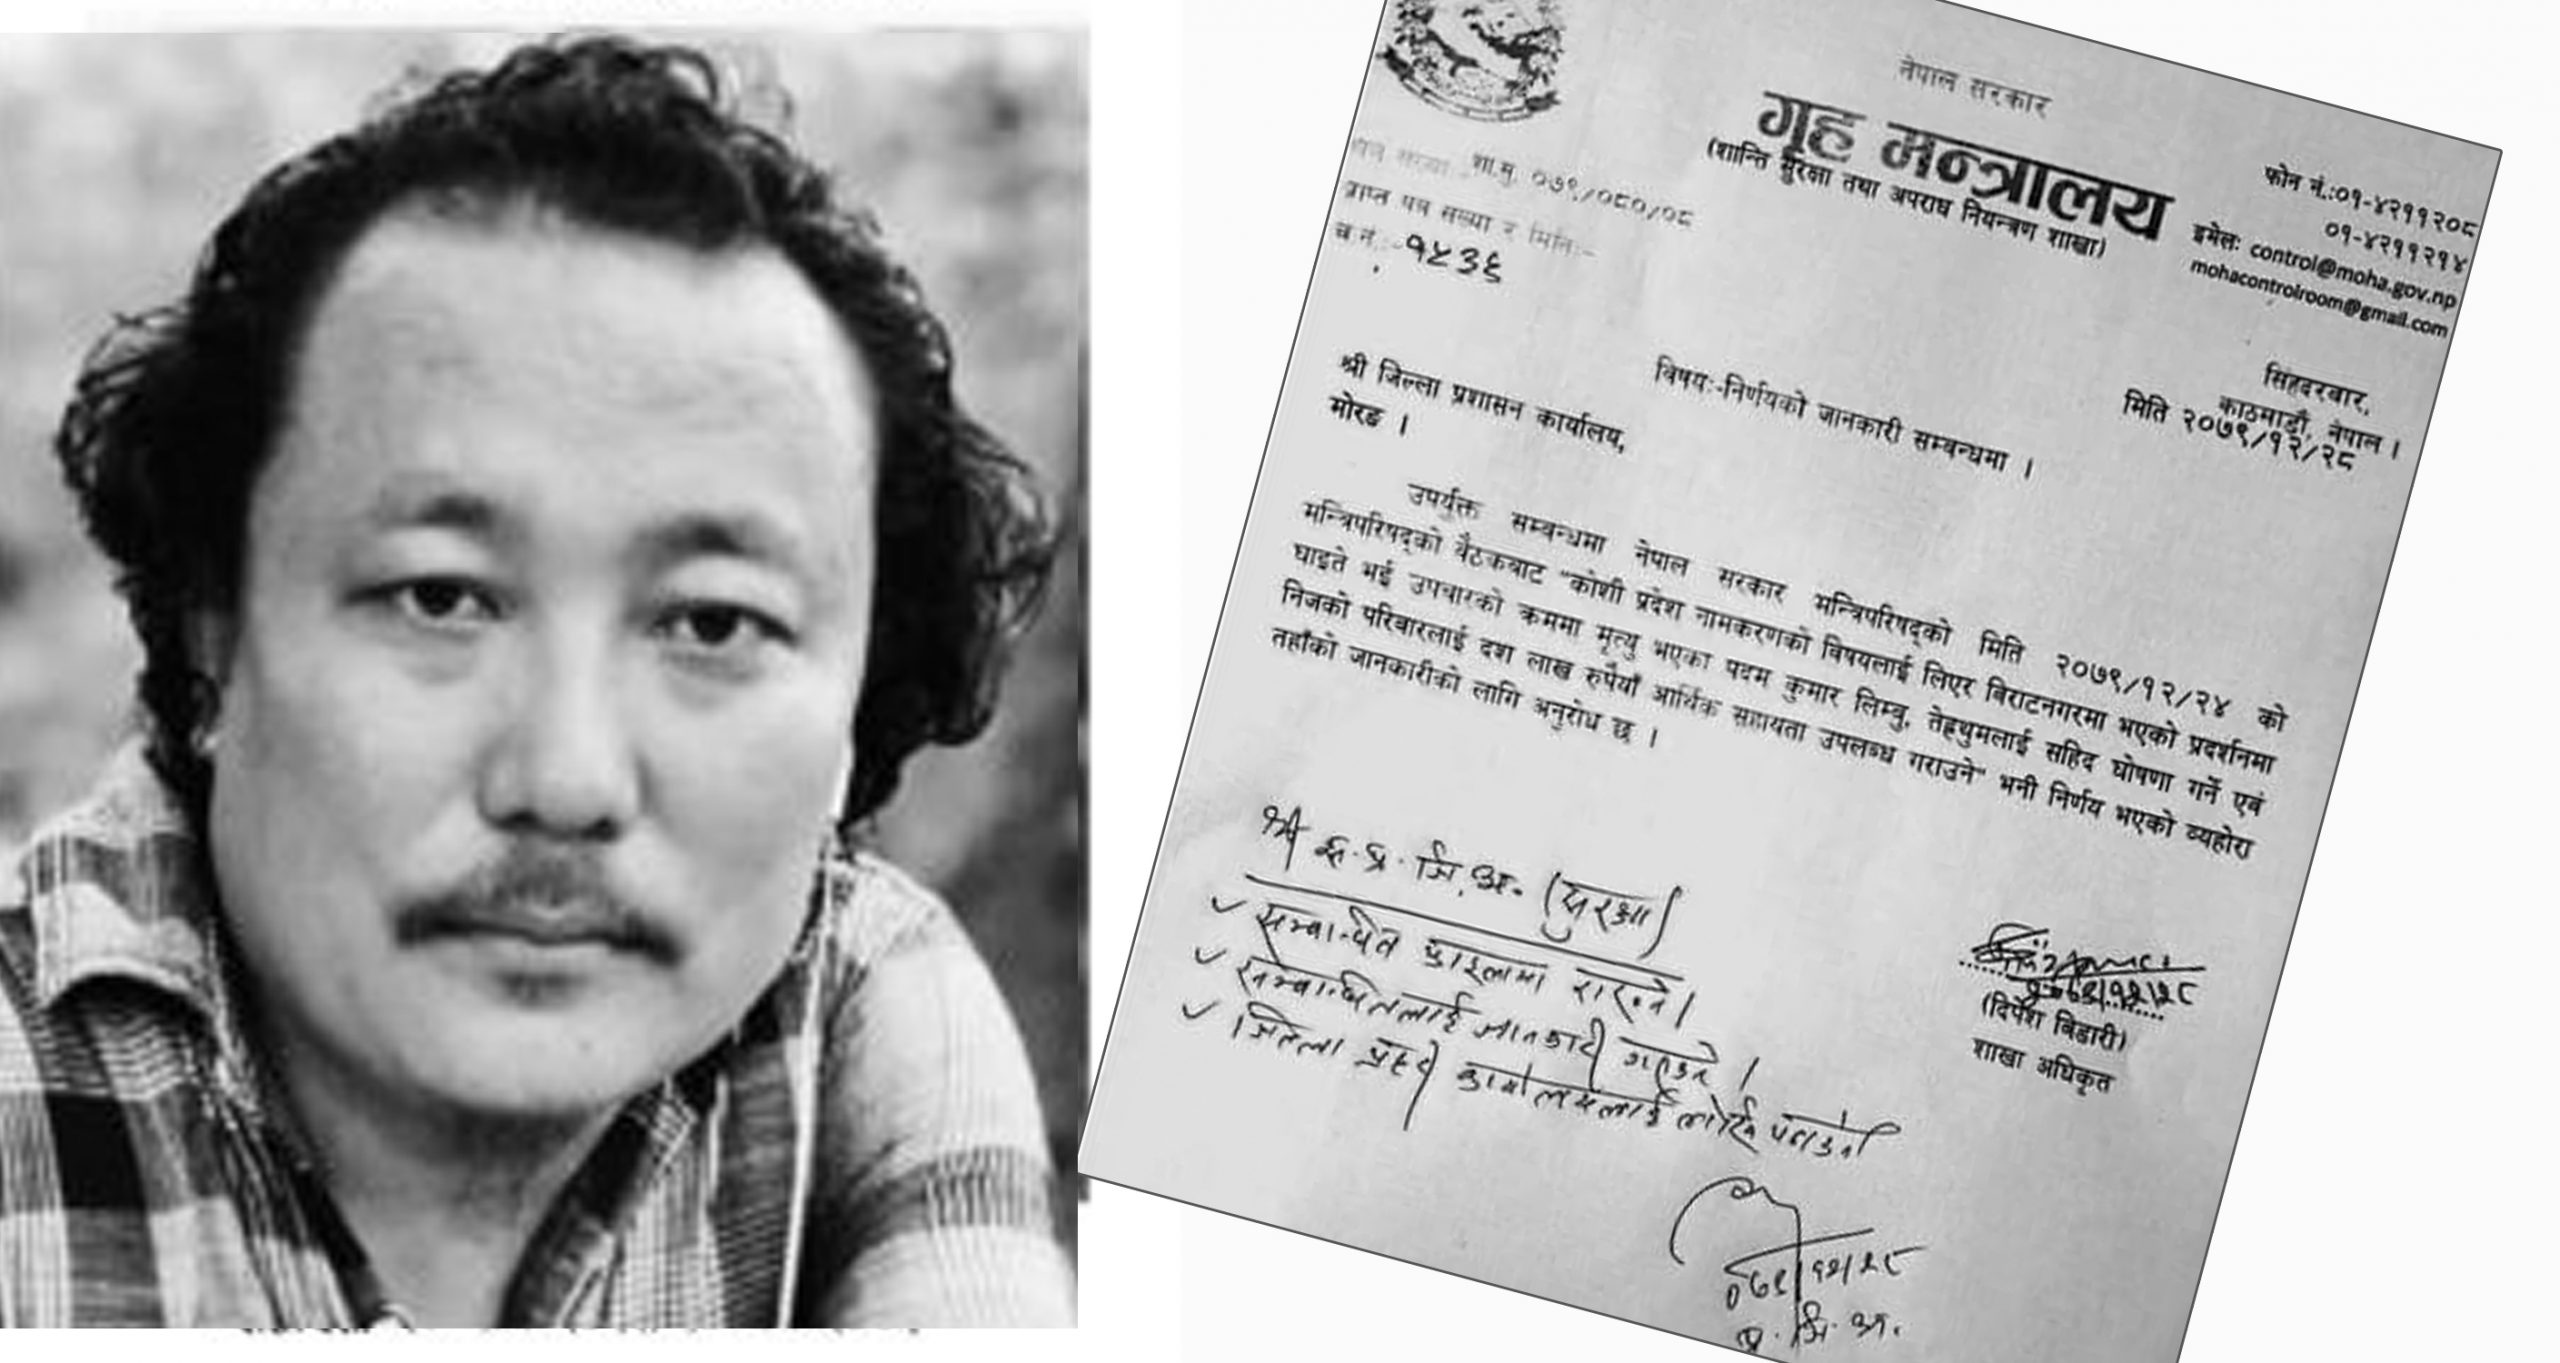 नेपाल सरकार
गृह मन्त्रालय
(शान्ति सुरक्षा तथा अपराध नियन्त्रण शाखा)
फोन नं.:०१-४२११२०८
०१-४२११२१४
इमेल: control@moha.gov.np
mohacontrolroom@gmail.com
पत्र संख्या शा.सु. ०७९/०८०/०८
प्राप्त पत्र संख्या र मिति:-
च.नं.:- १५३६
सिंहदरबार,
काठमाडौं, नेपाल ।
मिति २०७९/१२/२८
विषय:-निर्णयको जानकारी सम्बन्धमा ।
श्री जिल्ला प्रशासन कार्यालय,
मोरङ ।
उपर्युक्त सम्बन्धमा नेपाल सरकार मन्त्रिपरिषद्को मिति २०७९/१२/२४ को
मन्त्रिपरिषद्को बैठकबाट "कोशी प्रदेश नामकरणको विषयलाई लिएर बिराटनगरमा भएको प्रदर्शनमा
घाइते भई उपचारको क्रममा मृत्यु भएका पदम कुमार लिम्बु, तेह्रथुमलाई सहिद घोषणा गर्ने एवं
निजको परिवारलाई दश लाख रुपैयाँ आर्थिक सहायता उपलब्ध गराउने" भनी निर्णय भएको व्यहोरा
तहाँको जानकारीको लागि अनुरोध छ ।
श्री इ.प्र.जि.अ. (सुरक्षा)
सम्बन्धित फाइलमा राख्ने ।
सम्बन्धितलाई जानकारी गराउने ।
जिल्ला प्रहरी कार्यालयलाई पठाउने
२०७९/१२/२८
(दिपेश बिडारी)
शाखा अधिकृत
०७९/१२/२८
प्र.जि.अ.